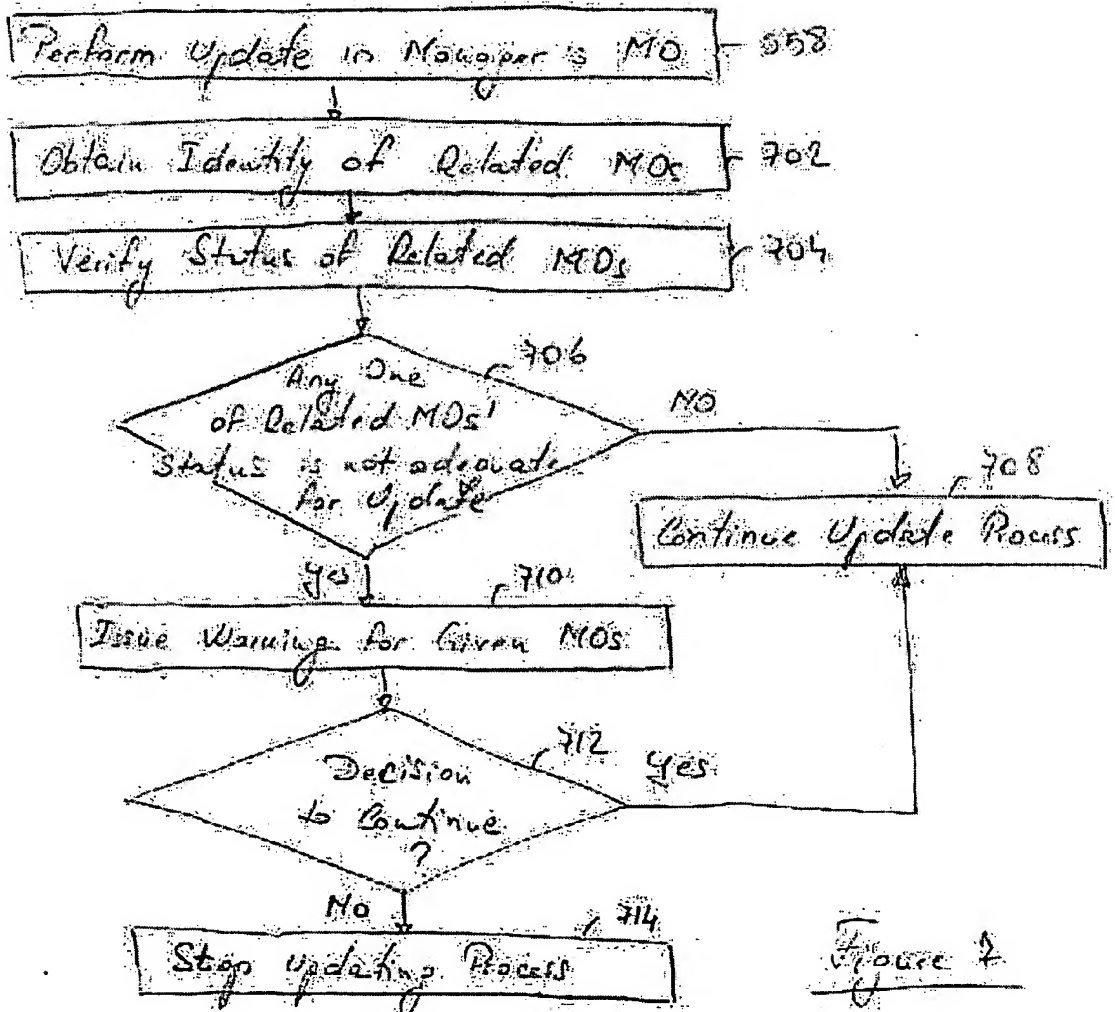 Perform Update in Manager's MO 558
Obtain Identity of Related MOs 702
Verify Status of Related MOs 704
706
Any One
of Related MOs'
Status is not adequate
for Update
NO
708
Continue Update Process
Yes
710
Issue Warning for Given MOs
712
Decision
to Continue
?
Yes
No
714
Stop Updating Process
Figure 7